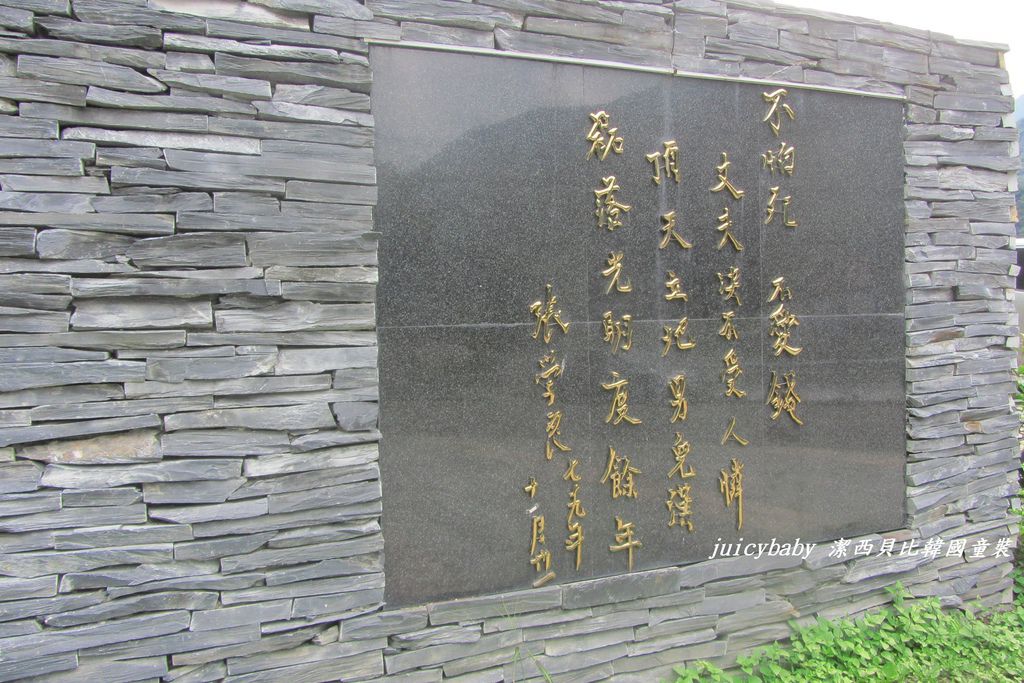 不怕死 不愛錢
丈夫決不受人憐
頂天立地男兒漢
磊落光明度餘年
張學良
七九年
十一月廿一
juicybaby 潔西貝比韓國童裝